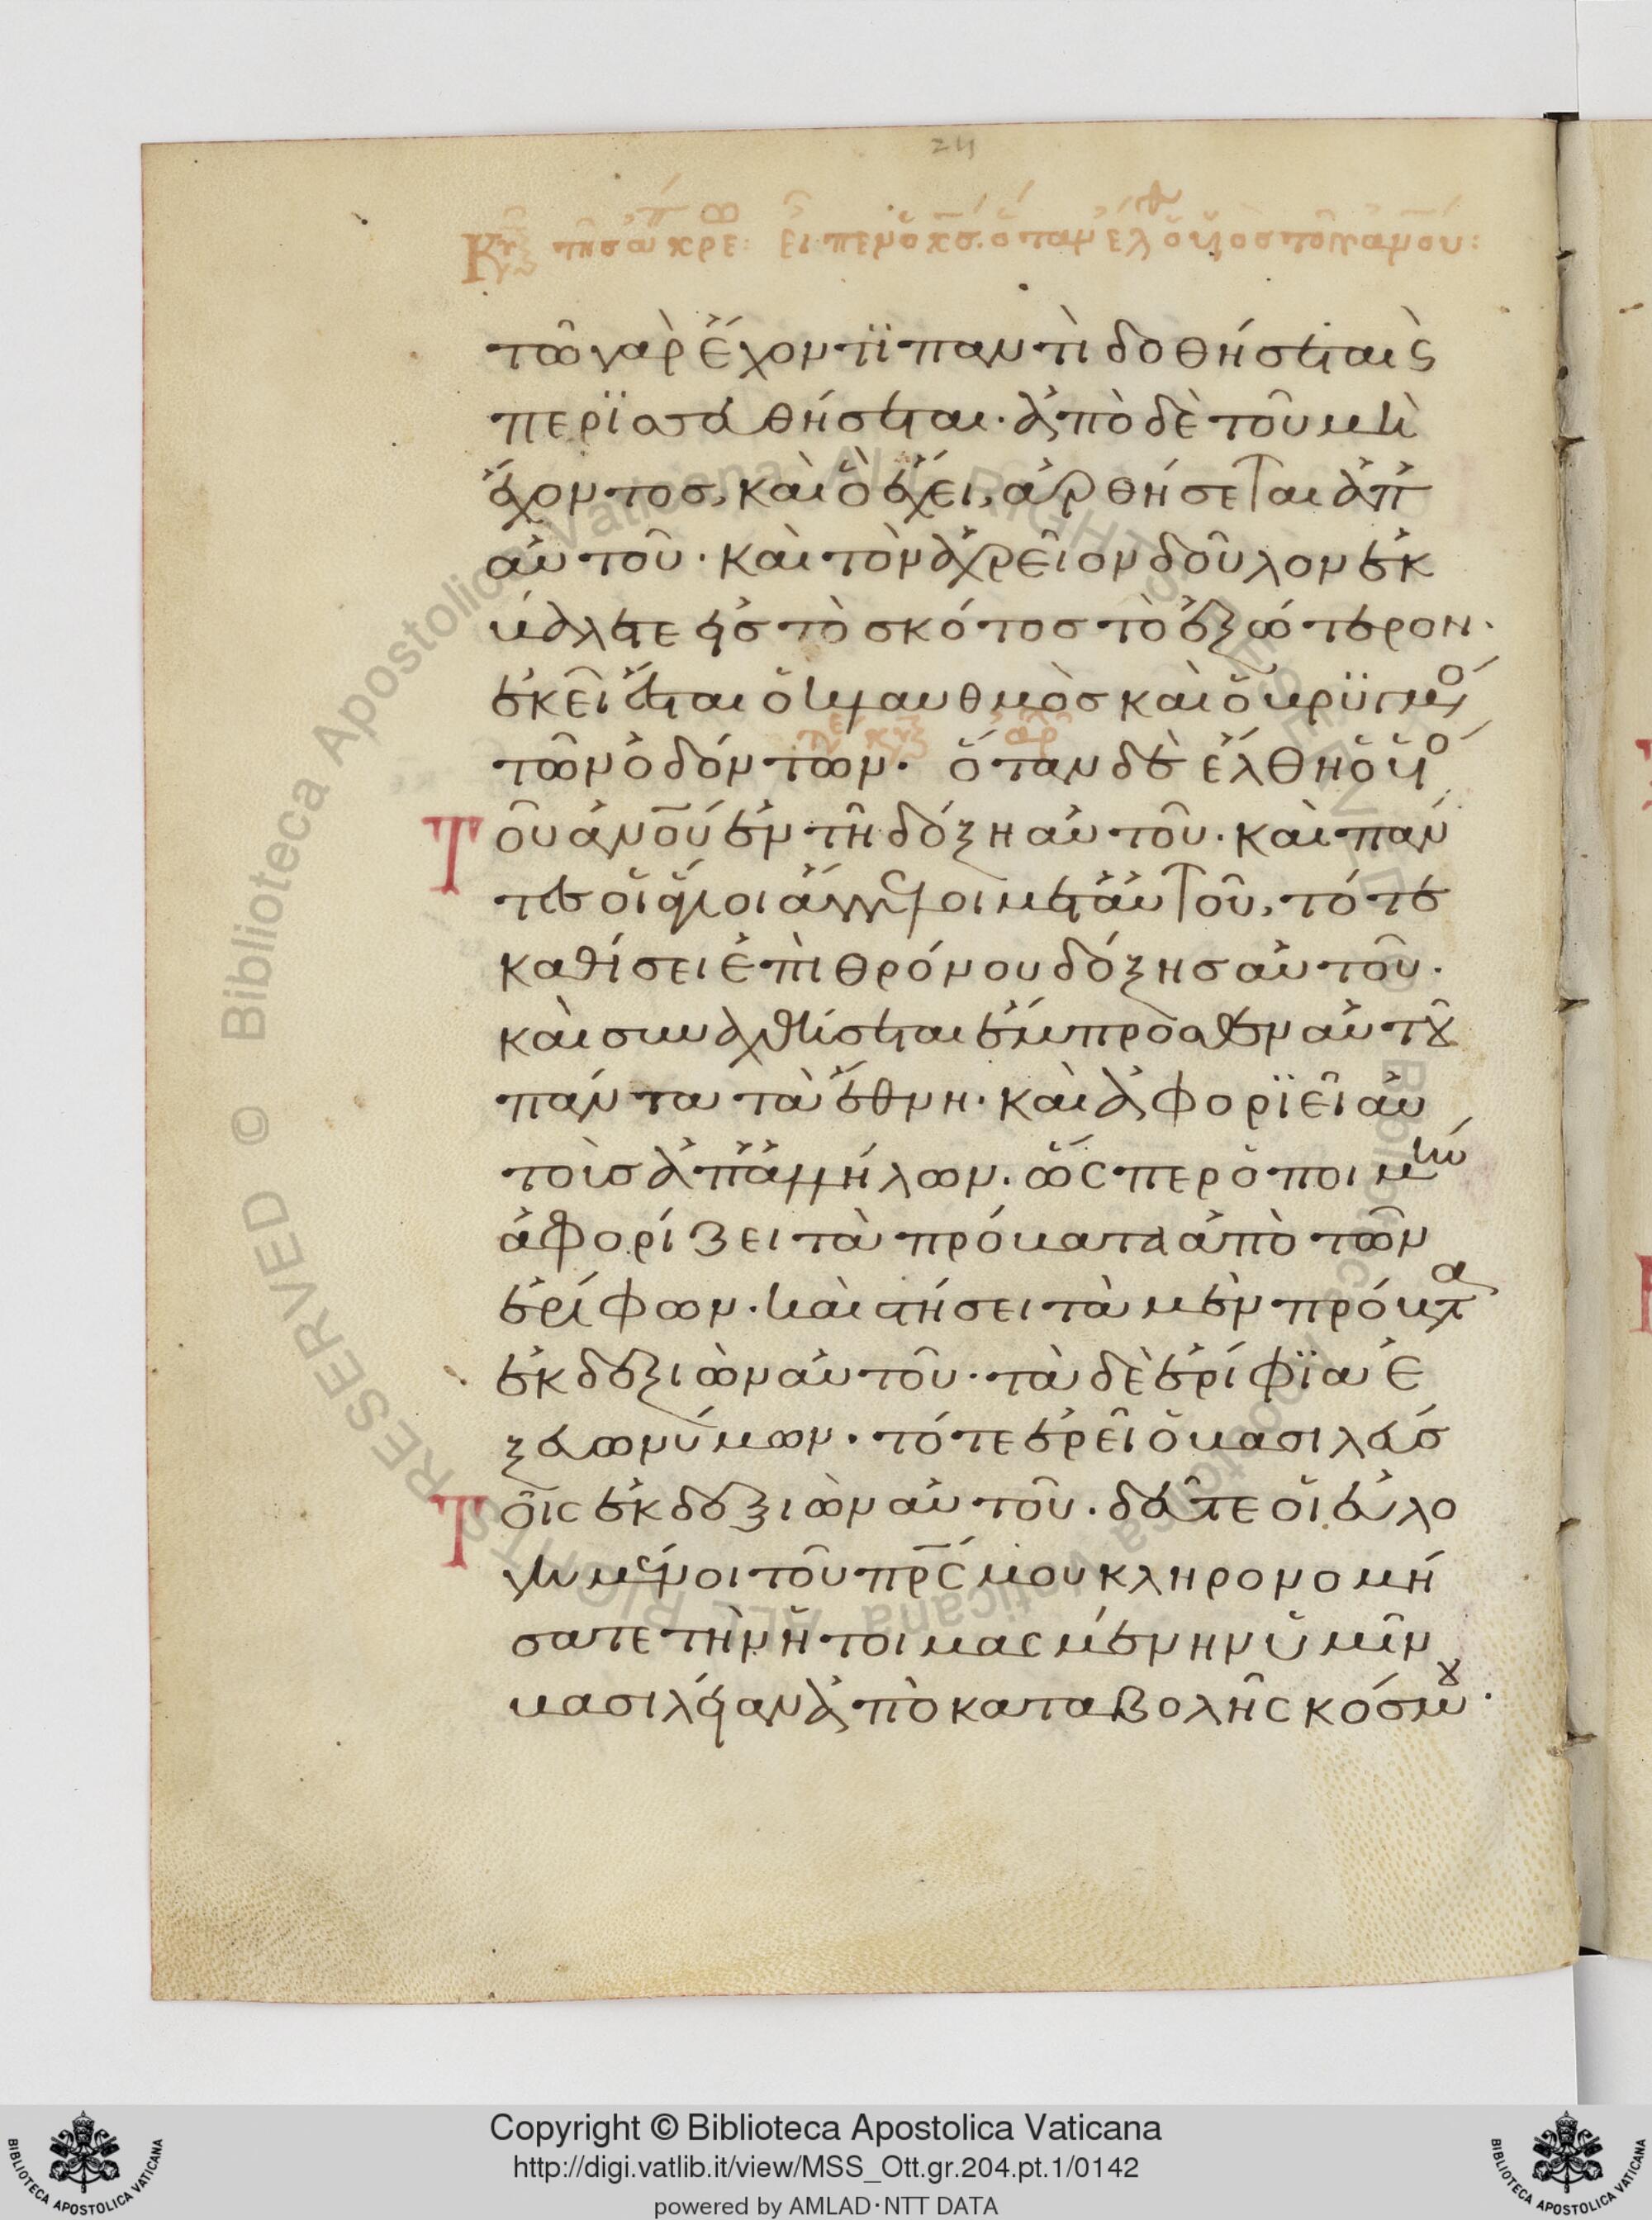 24
Κυ τῆς ἀπόκρε: εἶπεν ὁ κς. ὅταν ἔλθ ὁ υἱὸς τοῦ ἀνου:
τῶ γὰρ ἔχοντϊ παντὶ δοθήσεται ϗ
περϊσσευθήσεται· ἀπὸ δὲ τοῦ μὴ
ἔχοντος, καὶ ὃ ἔχει, ἀρθήσεται ἀπ
αὐτοῦ· καὶ τὸν ἀχρεῖον δοῦλον ἐκ
βάλετε εἰς τὸ σκότος τὸ ἐξώτερον·
ἐκεῖ ἔσται ὁ κλαυθμὸς καὶ ὁ βρϋγμὸ
τῶν ὀδόντων· ὅταν δὲ ἔλθη ὁ υἱὸ
Τοῦ ἀνου ἐν τῆ δόξη αὐτοῦ· καὶ πάν
τες οἱ ἅγιοι ἄγγελοι μετ αὐτοῦ, τότε
καθίσει ἐπὶ θρόνου δόξης αὐτοῦ·
καὶ συναχθήσεται ἔμπροσθεν αὐτοῦ
πάντα τὰ ἔθνη· καὶ ἀφορϊεῖ αὐ
τοὺς ἀπ ἀλλήλων· ὥσπερ ὁ ποιμὴν
ἀφορίζει τὰ πρόβατα ἀπὸ τῶν
ἐρίφων· καὶ στήσει τὰ μὲν πρόβατα
ἐκ δεξιῶν αὐτοῦ· τὰ δὲ ἐρίφϊα ἐ
ξ εὐωνύμων· τότε ἐρεῖ ὁ βασιλεύς
Τοῖς ἐκ δεξιῶν αὐτοῦ· δεῦτε οἱ εὐλο
γημένοι τοῦ πρς μου κληρονομή
σατε τὴν ἡτοιμασμένην ὑμῖν
βασιλείαν ἀπὸ καταβολῆς κόσμου·
© Biblioteca Apostolica Vaticana ALL RIGHTS RESERVED
Copyright © Biblioteca Apostolica Vaticana
http://digi.vatlib.it/view/MSS_Ott.gr.204.pt.1/0142
powered by AMLAD·NTT DATA
BIBLIOTECA APOSTOLICA VATICANA
BIBLIOTECA APOSTOLICA VATICANA